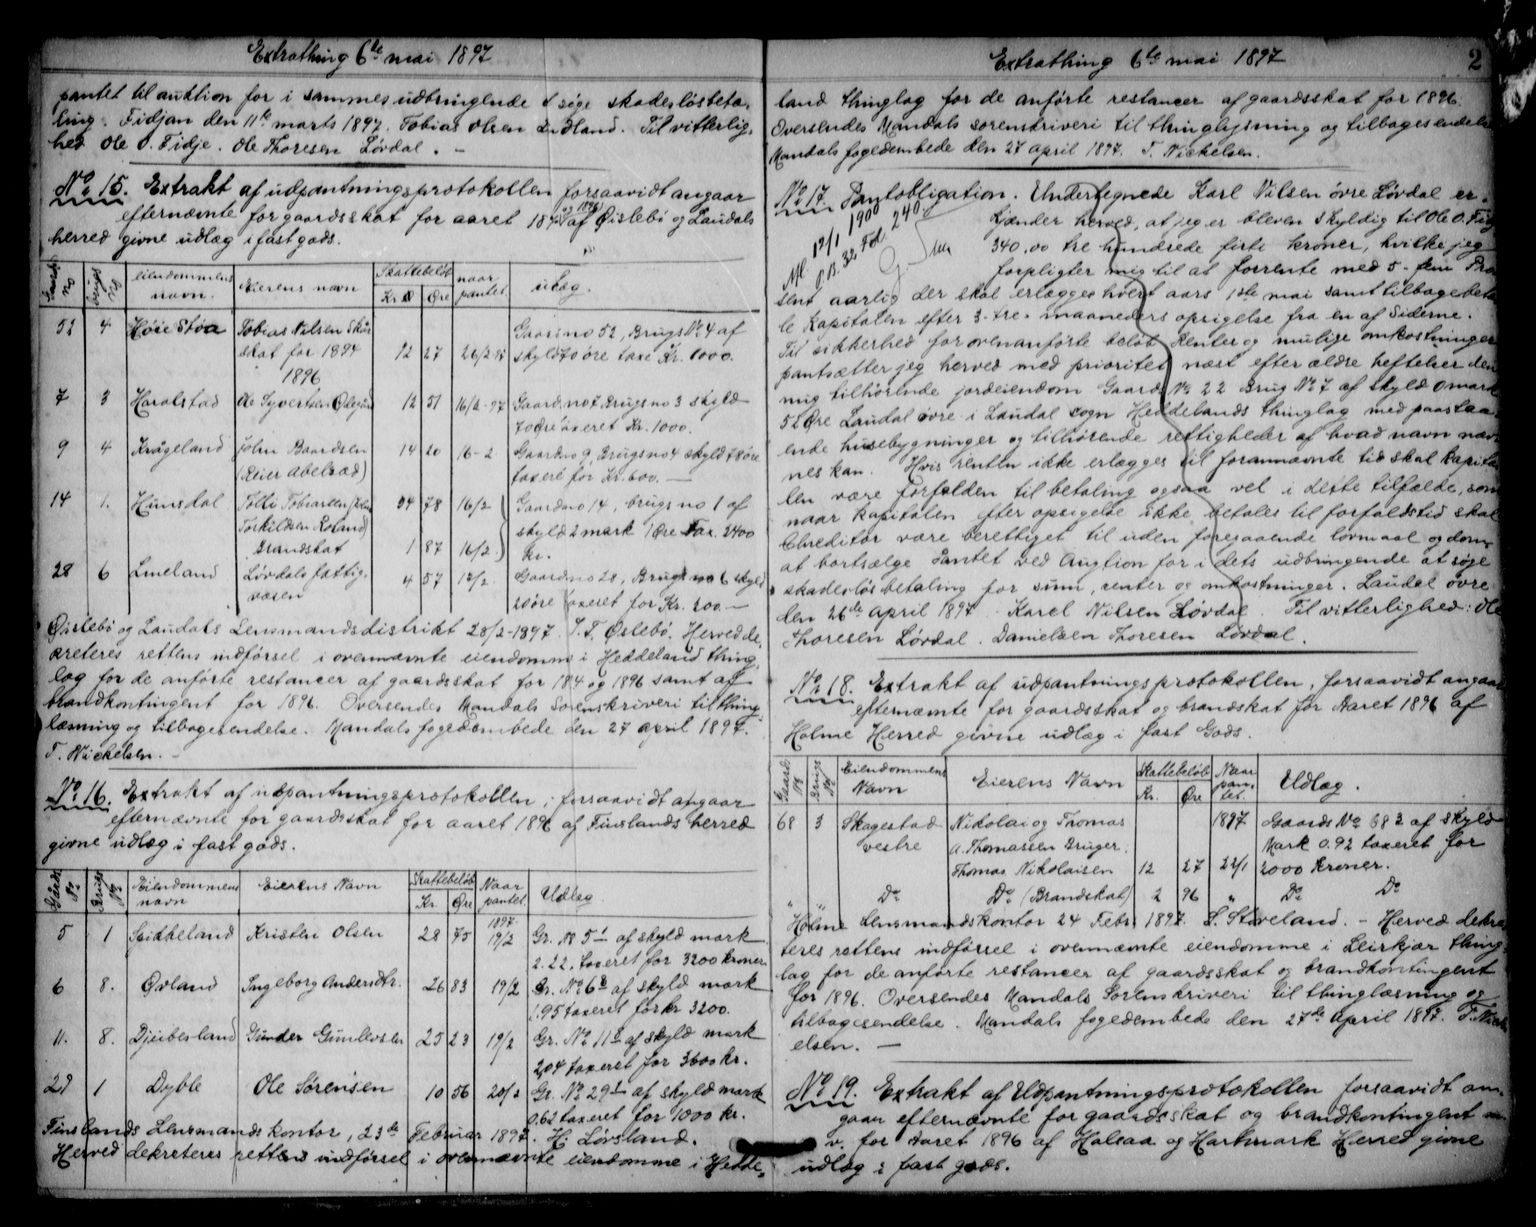 Extrathing 6te mai 1897
pantet til auktion for i sammes udbringende at søge skadesløsbeta-
ling. Fidjan den 11te marts 1897. Tobias Olsen Lindland. Til vitterlig-
hed Ole O. Fidje. Ole Thoresen Løvdal. —
No 15. Extrakt af udpantningsprotokollen forsaavidt angaar
efternævnte for gaardsskat for aaret 1894 og 1896 af Øislebø og Laudals
herred givne udlæg i fast gods.
Gaards no | Brugs no | Eiendommens navn. | Eierens navn | Skattebeløb Kr. Øre | naar pantet | udlæg.
52 4 Høie Støa Tobias Nilsen
skat for 1894 12 27 26/2 Gaards no 52, Brugs No 4 af
skyld 70 øre taxt Kr. 1000.
1896
7 3 Haralstad Ole Syvertsen 12 51 16/2-97 Gaards no 7 Brugs no 3 skyld
70 øre taxeret Kr. 1000.
9 4 Krågeland John Baardsen 14 20 16-2 Gaardno 9, Brugs no 4 skyld 78 øre
(Reier Abelsæd) taxeret for Kr. 600. —
14 1. Hunsdal Tolki Tobiassen 78 16/2 Gaardno 14, brugs no 1 af
Torkildsen skyld 2 mark 1 Øre Tax. 2400
Brandskat 1 87 16/2 kr.
28 6 Lineland Løvdals fattig- 4 57 12/2 Gaardno 28, Brugs no 6 skyld
væsen øre taxeret for Kr. 200. —
Øislebø og Laudals Lensmandsdistrikt 28/2-1897 T. T. Øslebø. Herved de-
kreteres rettens indførsel i ovennævnte eiendomme i Heddeland thing-
lag for de anførte restancer af gaardsskat for 1894 og 1896 samt af
brandkontingent for 1896. Oversendes Mandals Sorenskriveri til thing-
læsning og tilbagesendelse. Mandals fogedembede den 27 april 1897.
T. Nickelsen. —
No 16. Extrakt af udpantningsprotokollen, forsaavidt angaar
efternævnte for gaardsskat for aaret 1896 af Finslands herred
givne udlæg i fast gods.
Gards No | Brugs No | Eiendommens navn | Eierens Navn | Skattebeløb Kr. Øre | Naar pantet. | Udlæg.
1897
5 1 Spikkeland Kristen Olsen 28 75 19/2 Gr. No 5 1 af skyld mark
2.22, taxeret for 3200 kroner
6 8. Øvland Ingeborg Andersdtr. 26 83 19/2 Gr. No 6 8 af skyld mark
1.95 taxeret for kr 3200.
11. 8. Djubesland Gunder Gunlevsen 25 23 19/2 Gr. No 11 8 af skyld mark
2,04 taxeret for 3600 kr.
29 1 Dyble Ole Sørensen 10 56 20/2 Gr. No 29 1 af skyld mark
0,62 taxeret for 1000 kr.
Finslands Lensmandskontor, 23de Februar 1897. H. Løvsland.
Herved dekreteres rettens indførsel i ovennævnte eiendomme i Hedde-
Extrathing 6te mai 1897 2
land thinglag for de anførte restancer af gaardsskat for 1896.
Oversendes Mandals sorenskriveri til thinglysning og tilbagesendelse
Mandals fogedembede den 27 april 1897. T. Nickelsen.
No 17. Pantobligation. Undertegnede Karl Nilsen øvre Løvdal er-
kjender herved, at jeg er bleven skyldig til Ole O. Fidje
340,00 tre hundrede førti kroner, hvilke jeg
forpligter mig til at forrente med 5- fem Pro-
Afl. 12/1 1900
P.B. 32. Fol. 240
sent aarlig der skal erlægges hvert aars 1ste mai samt tilbagebeta-
le Kapitalen efter 3- tre- maaneders opsigelse fra en af Siderne.
Til sikkerhed for ovenanførte beløb Renter og mulige omkostninger
pantsætter jeg herved med prioritet næst efter ældre heftelser den
mig tilhørende jordeiendom Gaards No 22 Brug No 7 af skyld 0 mark
52 Øre Laudal øvre i Laudal sogn Heddelands thinglag med paastaa-
ende husebygninger og tilhørende rettigheder af hvad navn næv-
nes kan. Hvis renten ikke erlægges til forannævnte tid skal Kapita-
len være forfalden til betaling ogsaa vel i dette tilfælde, som
naar Kapitalen efter opsigelse ikke betales til forfaldstid skal
Chreditor være berettiget til uden foregaaende lovmaal og dom
at bortsælge Pantet ved Auction for i dets udbringende at søge
skadesløs betaling for sum, renter og omkostninger. Laudal øvre
den 26de april 1897. Karel Nilsen Løvdal. Til vitterlighed: Ole
Thoresen Løvdal. Danielsen Thoresen Løvdal.
No 18. Extrakt af udpantningsprotokollen, forsaavidt angaar
efternævnte for gaardsskat og brandskat for Aaret 1896 af
Holme Herred givne udlæg i fast Gods.
Gaards No | Brugs No | Eiendommens Navn | Eierens Navn | Skattebeløb Kr. Øre | Naar pantet. | Udlæg.
68 3 Skagestad Nikolai og Thomas 1897 Gaards No 68 3 af skyld
vestre A. Thomassen Bruger. Mark 0.92 taxeret for
Thomas Nikolaisen 12 27 22/1 2000 Kroner.
" " Do Do (Brandskat) 2 96 " Do Do
Holme Lensmandskontor 24 Febr. 1897. S. Staveland. — Herved dekre-
teres rettens indførsel i ovennævnte eiendomme i Leirkjær thing-
lag for de anførte restancer af gaardsskat og brandkontingent
for 1896. Oversendes Mandals Sorenskriveri til thinglæsning og
tilbagesendelse. Mandals fogedembede den 27de April 1897. T. Nick-
elsen. —
No 19. Extrakt af Udpantningsprotokollen forsaavidt an-
gaar efternævnte for gaardsskat og brandkontingent m.
v. for Aaret 1896 af Halsaa og Hartmark Herred givne
udlæg i fast gods.